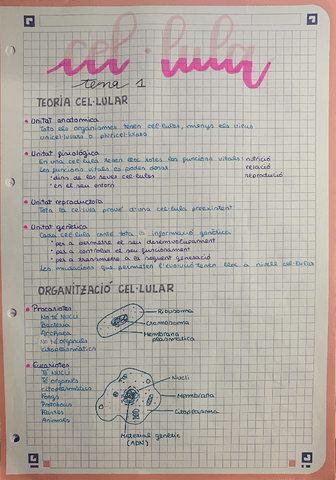 cel·lula
tema 1
TEORÍA CEL·LULAR
Unitat anatòmica
Tots els organismes tenen cel·lules, menys els virus
unicel·lulars o pluricel·lulars
Unitat fisiològica
En una cel·lula tenen lloc totes les funcions vitals: nutrició
Les funcions vitals es poden donar relació
dins de les seves cel·lules reproducció
en el seu entorn
Unitat reproductora
Tota la cel·lula prové d'una cel·lula preexistent
Unitat genètica
Cada cel·lula conté tota la informació genètica
per a permetre el seu desenvolupament
per a controlar el seu funcionament
per a transmetre a la següent generació
Les mutacions que permeten l'evolució tenen lloc a nivell cel·lular
ORGANITZACIÓ CEL·LULAR
Procariotes
No té NUCLI
Bacteris
No té orgànuls
citoplasmàtics
Ribosoma
Cromosoma
Membrana
plasmàtica
Eucariotes
Té NUCLI
Té orgànuls
citoplasmàtics
Fongs
Protozous
Plantes
Animals
Nucli
Membrana
Citoplasma
Material genètic
(ADN)